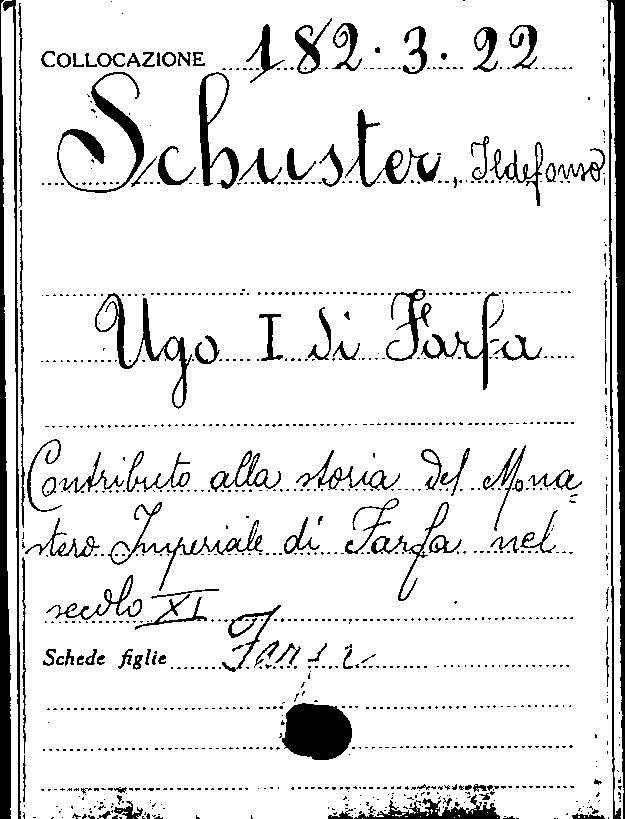 COLLOCAZIONE 182.3.22
Schuster, Ildefonso
Ugo I di Farfa
Contributo alla storia del Mona=
stero Imperiale di Farfa nel
secolo XI
Schede figlie Farfa